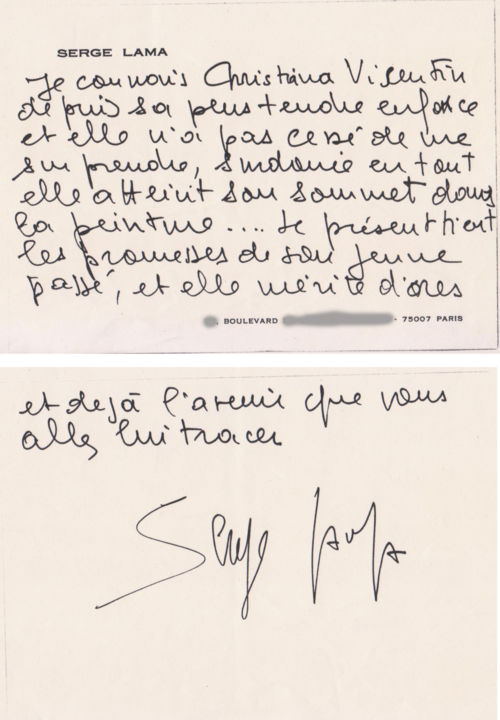 SERGE LAMA
Je connais Christiana Visentin
depuis sa plus tendre enfance
et elle n'a pas cessé de me
surprendre, si douée en tout
elle atteint son sommet dans
la peinture.... Le présent tient
les promesses de son jeune
passé, et elle mérite d'ores
BOULEVARD - 75007 PARIS
et dejà l'avenir que vous
allez lui tracer
Serge Lama